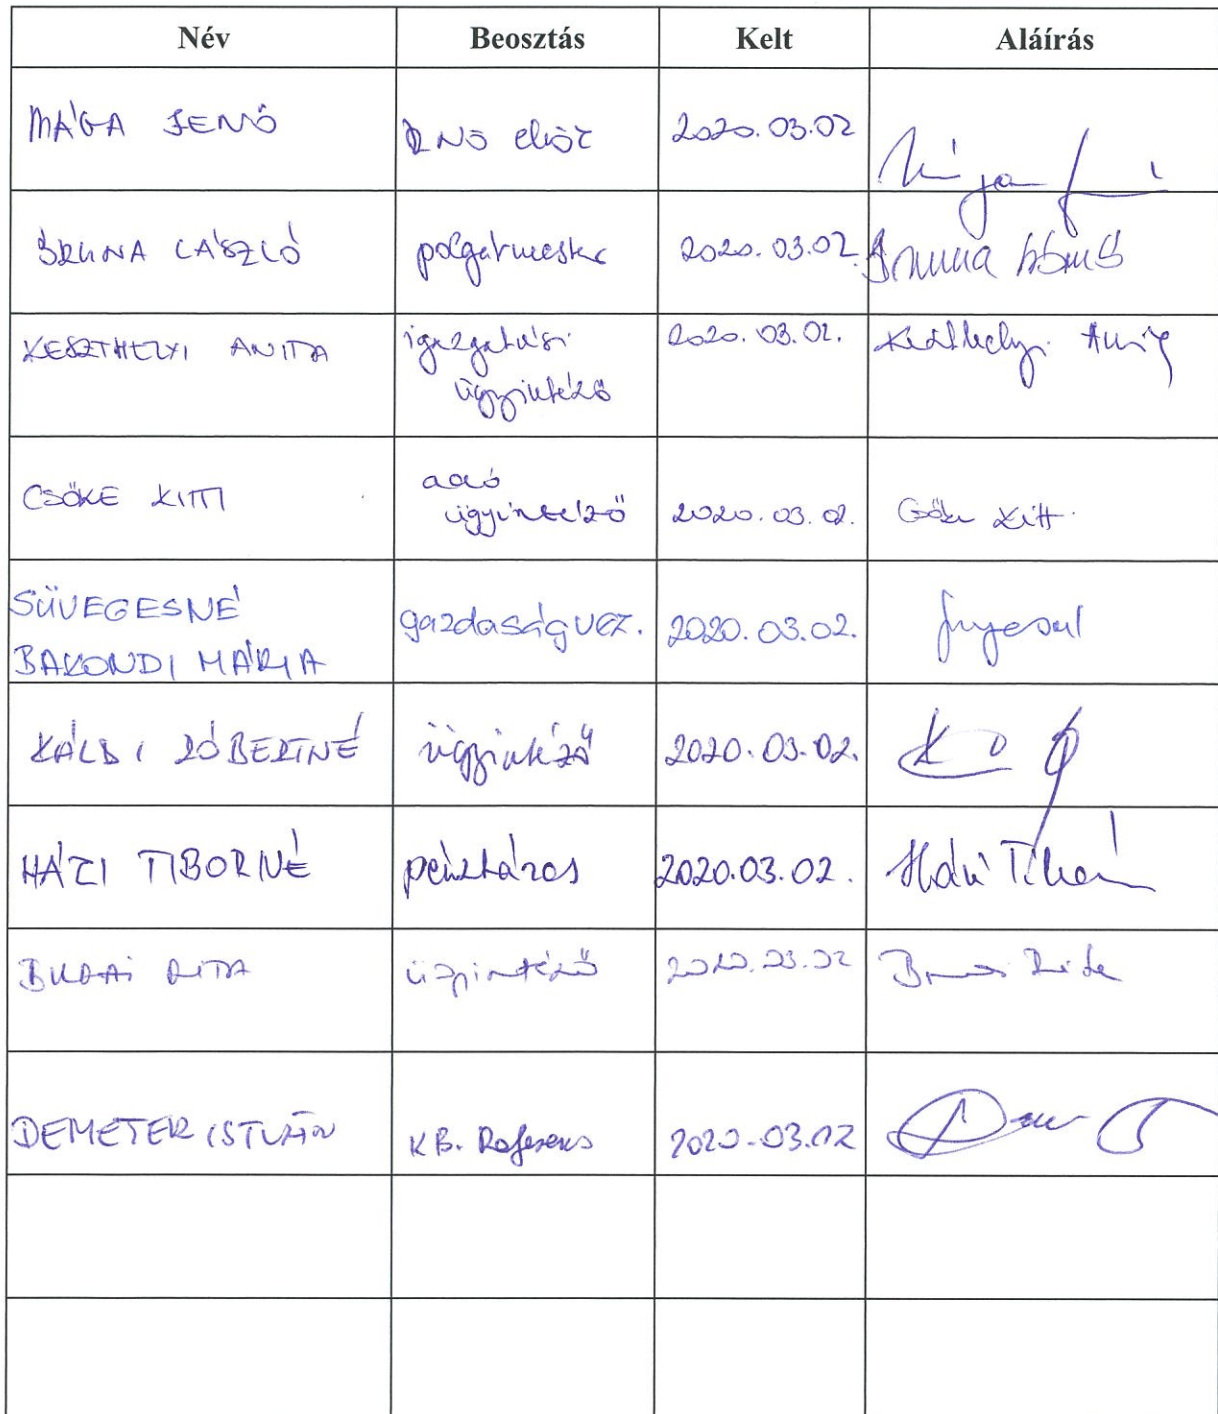 Név Beosztás Kelt Aláírás
MÁGA JENŐ RNÖ elnök 2020.03.02
BRUNA LÁSZLÓ polgármester 2020.03.02.
KESZTHELYI ANITA igazgatási 2020.03.02. Keszthelyi Anita
ügyintéző
CSŐKE KITTI adó
ügyintéző 2020.03.02. Csőke Kitti
SÜVEGESNÉ gazdaságvez. 2020.03.02.
BAKONDI MÁRIA
KÁLDI RÓBERTNÉ ügyintéző 2020.03.02.
HÁZI TIBORNÉ pénztáros 2020.03.02. Házi Tiborné
BUDAI RITA ügyintéző 2020.03.02 Budai Rita
DEMETER ISTVÁN KB. Referens 2020.03.02